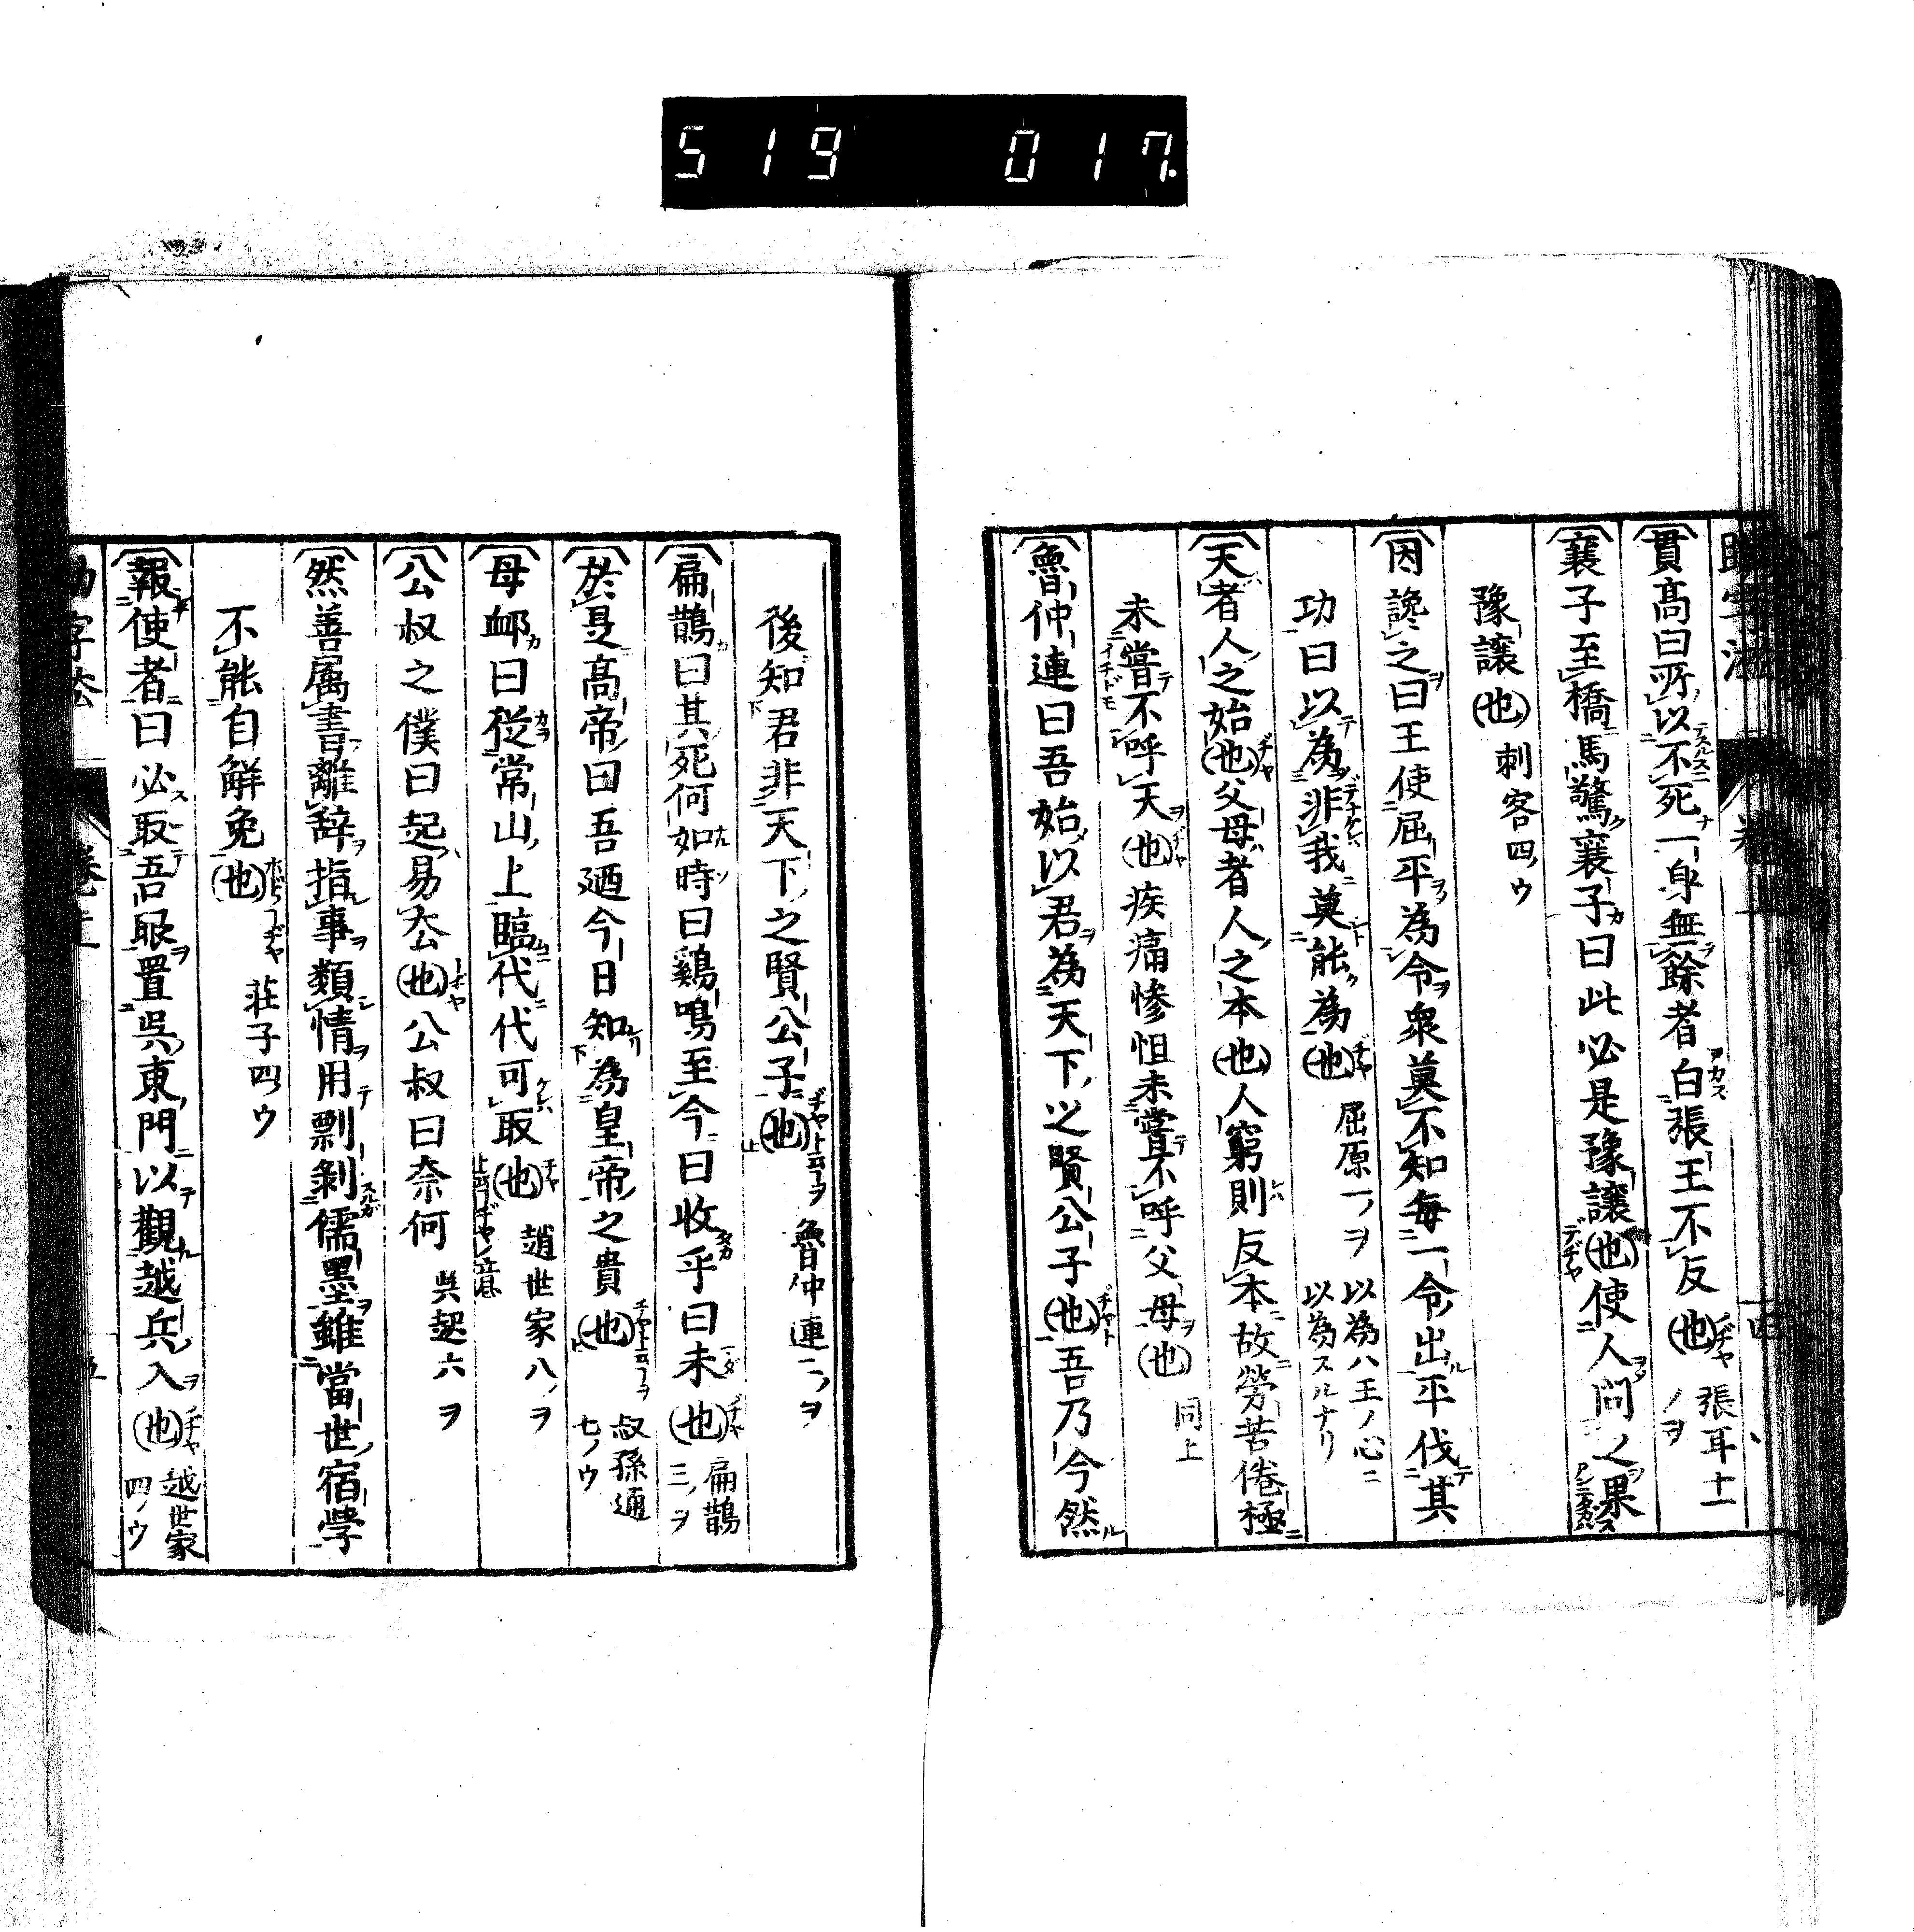 519 017
貫高曰所以不死一身無餘者白張王不反(也) 張耳十一ノヲ
襄子至橋馬驚襄子曰此必是豫讓(也)使人問之果
豫讓(也) 刺客四ノウ
因讒之曰王使屈平為令衆莫不知毎一令出平伐其
功曰以為非我莫能為(也) 屈原一ノヲ 以為ハ王ノ心ニ以為スルナリ
天者人之始(也)父母者人之本(也)人窮則反本故勞苦倦極
未嘗不呼天(也)疾痛惨怛未嘗不呼父母(也) 同上
魯仲連曰吾始以君為天下之賢公子(也)吾乃今然
後知君非天下之賢公子(也) 魯仲連二ノヲ
扁鵲曰其死何如時曰鷄鳴至今曰收乎曰未(也) 扁鵲三ノヲ
於是高帝曰吾廼今日知為皇帝之貴(也) 叔孫通七ノウ
母卹曰從常山上臨代代可取(也) 趙世家八ノヲ
公叔之僕曰起易去(也)公叔曰奈何 呉起六ヲ
然善属書離辞指事類情用剽剝儒墨雖當世宿学
不能自解免(也) 荘子四ノウ
報使者曰必取吾眼置呉東門以觀越兵入(也) 越世家四ノウ